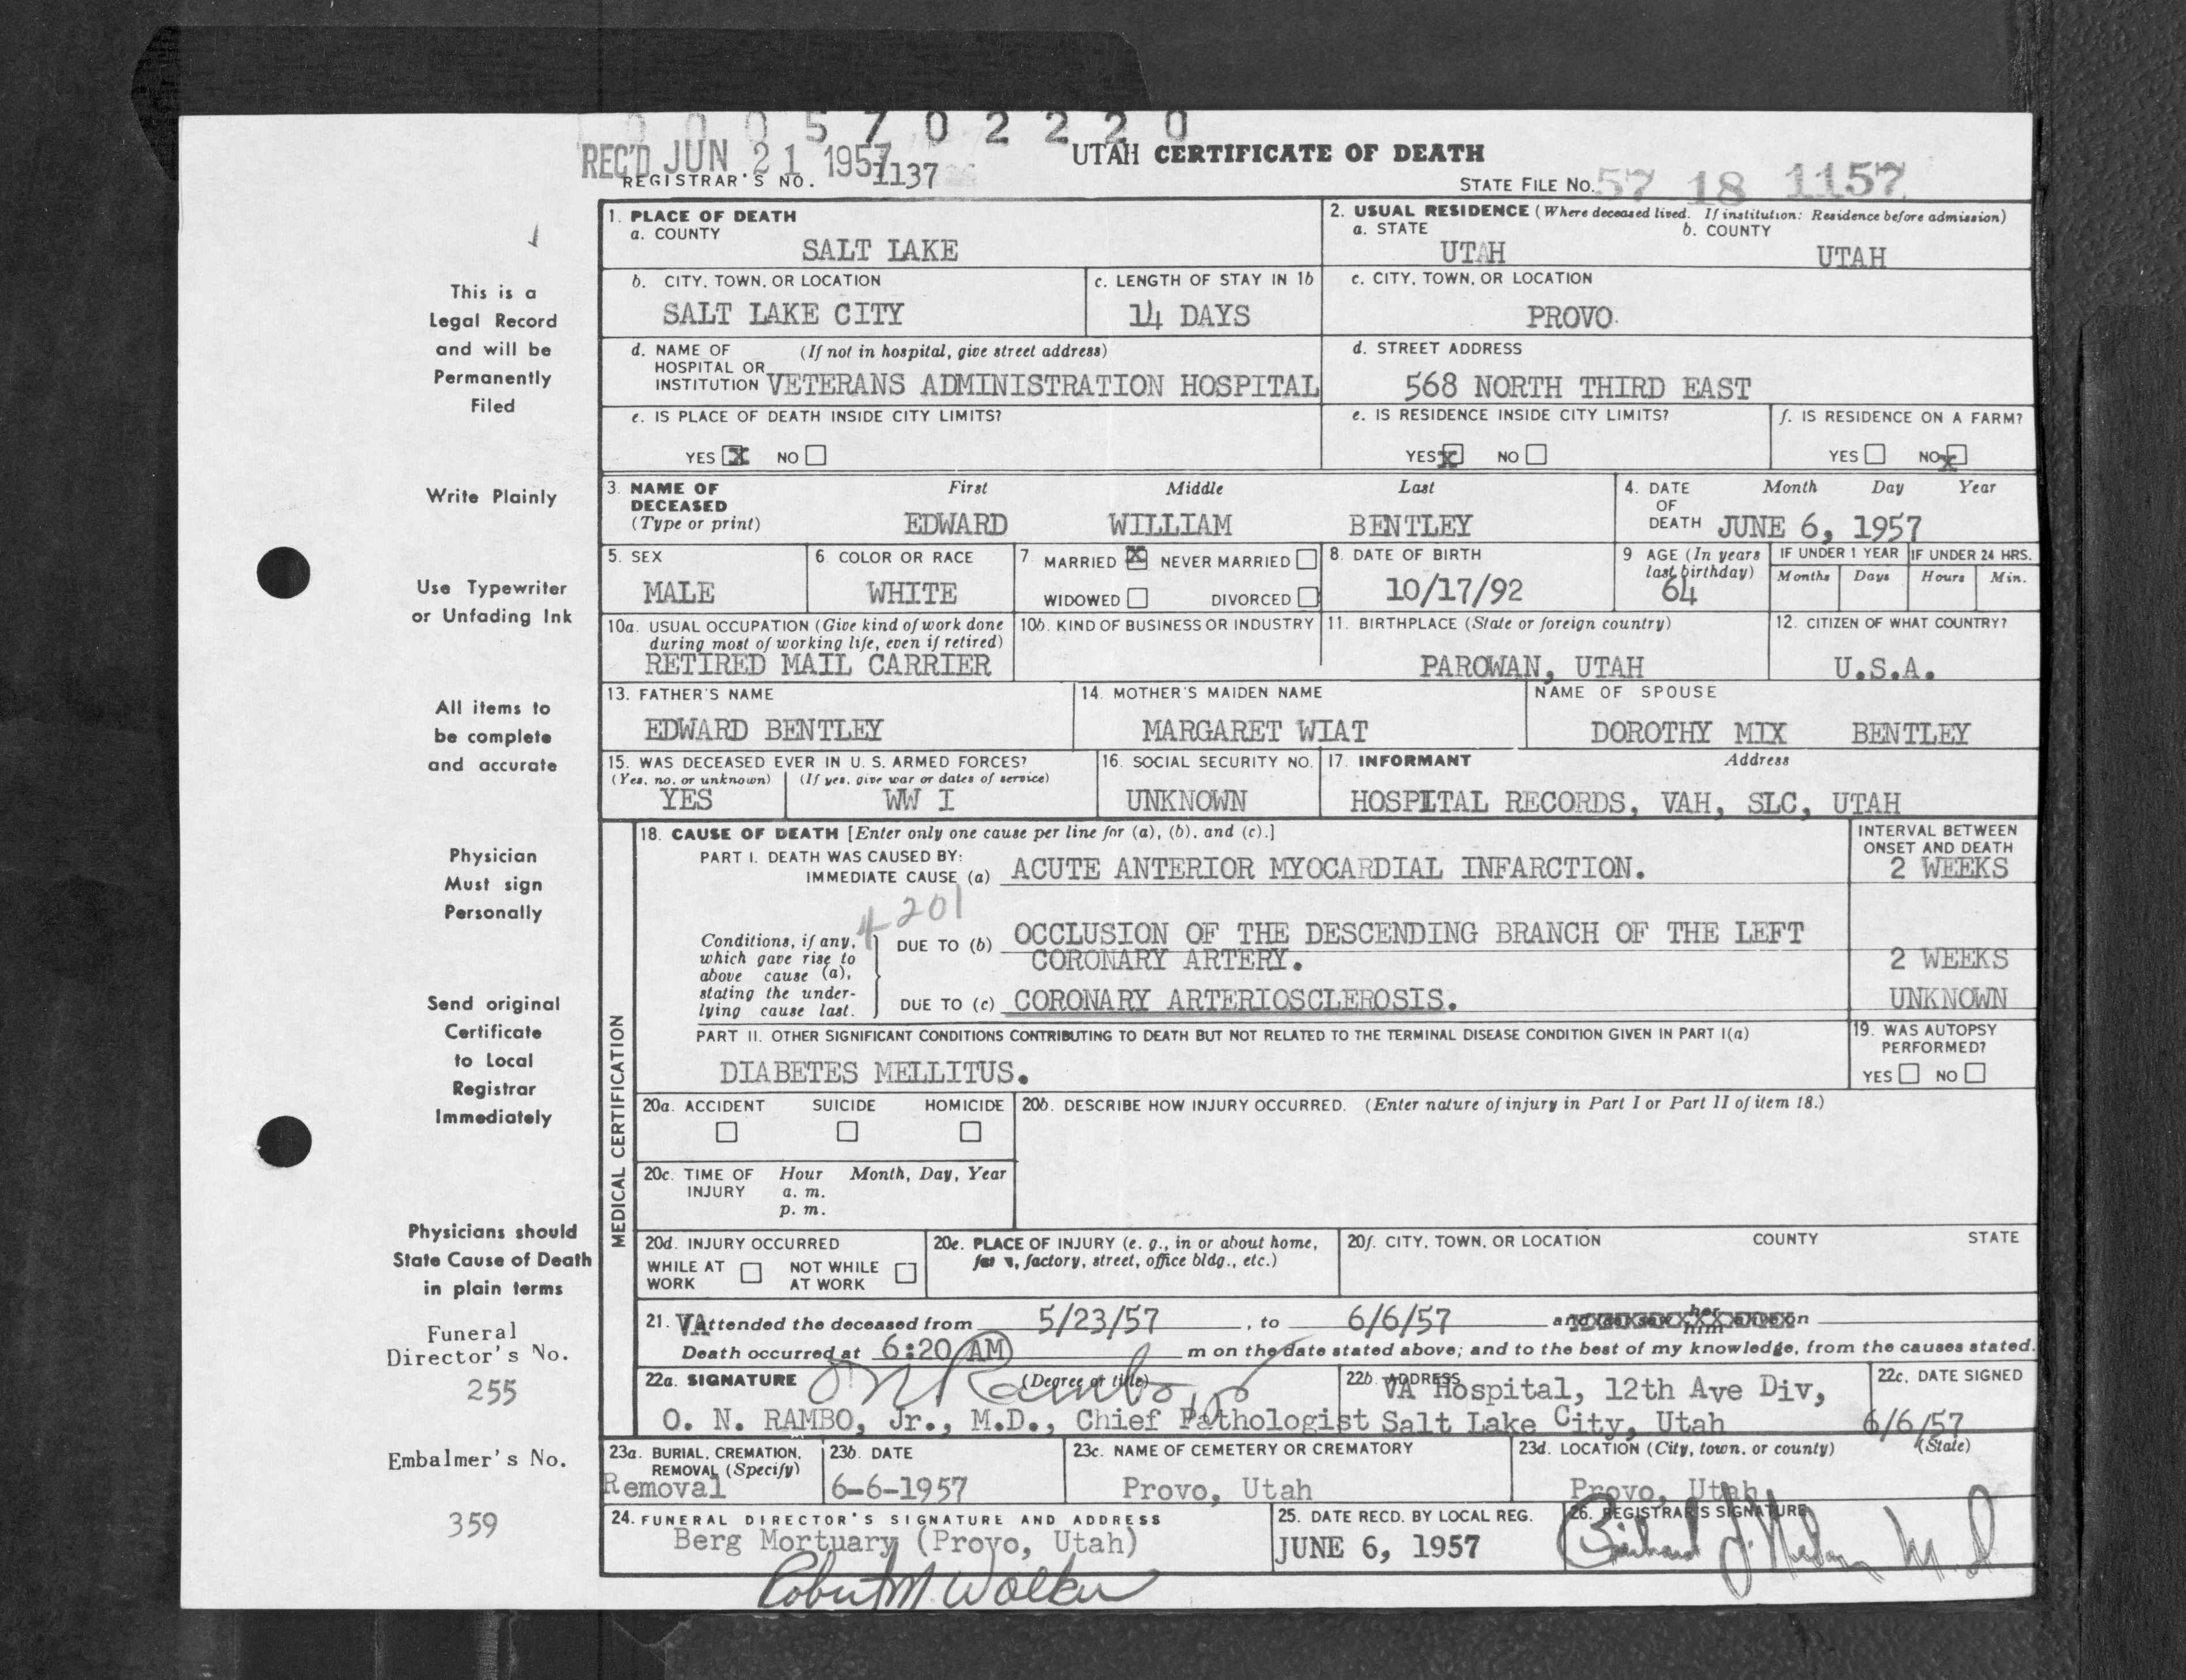 0 0 0 5 7 0 2 2 2 0
REC'D JUN 21 1957
REGISTRAR'S NO. 1137
UTAH CERTIFICATE OF DEATH
STATE FILE NO. 57 18 1157
This is a
Legal Record
and will be
Permanently
Filed
Write Plainly
Use Typewriter
or Unfading Ink
All items to
be complete
and accurate
Physician
Must sign
Personally
Send original
Certificate
to Local
Registrar
Immediately
Physicians should
State Cause of Death
in plain terms
Funeral
Director's No.
255
Embalmer's No.
359
1. PLACE OF DEATH
a. COUNTY
SALT LAKE
2. USUAL RESIDENCE (Where deceased lived. If institution: Residence before admission)
a. STATE b. COUNTY
UTAH UTAH
b. CITY, TOWN, OR LOCATION
SALT LAKE CITY
c. LENGTH OF STAY IN 1b
14 DAYS
c. CITY, TOWN, OR LOCATION
PROVO
d. NAME OF (If not in hospital, give street address)
HOSPITAL OR
INSTITUTION VETERANS ADMINISTRATION HOSPITAL
d. STREET ADDRESS
568 NORTH THIRD EAST
e. IS PLACE OF DEATH INSIDE CITY LIMITS?
YES X NO
e. IS RESIDENCE INSIDE CITY LIMITS?
YES X NO
f. IS RESIDENCE ON A FARM?
YES NO X
3. NAME OF First Middle Last
DECEASED
(Type or print) EDWARD WILLIAM BENTLEY
4. DATE Month Day Year
OF
DEATH JUNE 6, 1957
5. SEX
MALE
6. COLOR OR RACE
WHITE
7. MARRIED X NEVER MARRIED
WIDOWED DIVORCED
8. DATE OF BIRTH
10/17/92
9 AGE (In years
last birthday)
64
IF UNDER 1 YEAR IF UNDER 24 HRS.
Months Days Hours Min.
10a. USUAL OCCUPATION (Give kind of work done
during most of working life, even if retired)
RETIRED MAIL CARRIER
10b. KIND OF BUSINESS OR INDUSTRY
11. BIRTHPLACE (State or foreign country)
PAROWAN, UTAH
12. CITIZEN OF WHAT COUNTRY?
U.S.A.
13. FATHER'S NAME
EDWARD BENTLEY
14. MOTHER'S MAIDEN NAME
MARGARET WIAT
NAME OF SPOUSE
DOROTHY MIX BENTLEY
15. WAS DECEASED EVER IN U. S. ARMED FORCES?
(Yes, no, or unknown) (If yes, give war or dates of service)
YES WW I
16. SOCIAL SECURITY NO.
UNKNOWN
17. INFORMANT Address
HOSPITAL RECORDS, VAH, SLC, UTAH
MEDICAL CERTIFICATION
18. CAUSE OF DEATH [Enter only one cause per line for (a), (b), and (c).]
INTERVAL BETWEEN
ONSET AND DEATH
PART I. DEATH WAS CAUSED BY:
IMMEDIATE CAUSE (a) ACUTE ANTERIOR MYOCARDIAL INFARCTION.
2 WEEKS
4201
Conditions, if any,
which gave rise to
above cause (a),
stating the under-
lying cause last.
DUE TO (b) OCCLUSION OF THE DESCENDING BRANCH OF THE LEFT
CORONARY ARTERY.
2 WEEKS
DUE TO (c) CORONARY ARTERIOSCLEROSIS.
UNKNOWN
PART II. OTHER SIGNIFICANT CONDITIONS CONTRIBUTING TO DEATH BUT NOT RELATED TO THE TERMINAL DISEASE CONDITION GIVEN IN PART I(a)
DIABETES MELLITUS.
19. WAS AUTOPSY
PERFORMED?
YES NO
20a. ACCIDENT SUICIDE HOMICIDE
20b. DESCRIBE HOW INJURY OCCURRED. (Enter nature of injury in Part I or Part II of item 18.)
20c. TIME OF Hour Month, Day, Year
INJURY a. m.
p. m.
20d. INJURY OCCURRED
WHILE AT NOT WHILE
WORK AT WORK
20e. PLACE OF INJURY (e. g., in or about home,
farm, factory, street, office bldg., etc.)
20f. CITY, TOWN, OR LOCATION COUNTY STATE
21. VA attended the deceased from 5/23/57, to 6/6/57 and last saw her him alive on
Death occurred at 6:20 AM m on the date stated above; and to the best of my knowledge, from the causes stated.
22a. SIGNATURE (Degree or title)
O N Rambo Jr
O. N. RAMBO, Jr., M.D., Chief Pathologist
22b. ADDRESS
VA Hospital, 12th Ave Div,
Salt Lake City, Utah
22c. DATE SIGNED
6/6/57
23a. BURIAL, CREMATION,
REMOVAL (Specify)
Removal
23b. DATE
6-6-1957
23c. NAME OF CEMETERY OR CREMATORY
Provo, Utah
23d. LOCATION (City, town, or county) (State)
Provo, Utah
24. FUNERAL DIRECTOR'S SIGNATURE AND ADDRESS
Berg Mortuary (Provo, Utah)
Robert M. Walker
25. DATE RECD. BY LOCAL REG.
JUNE 6, 1957
26. REGISTRAR'S SIGNATURE